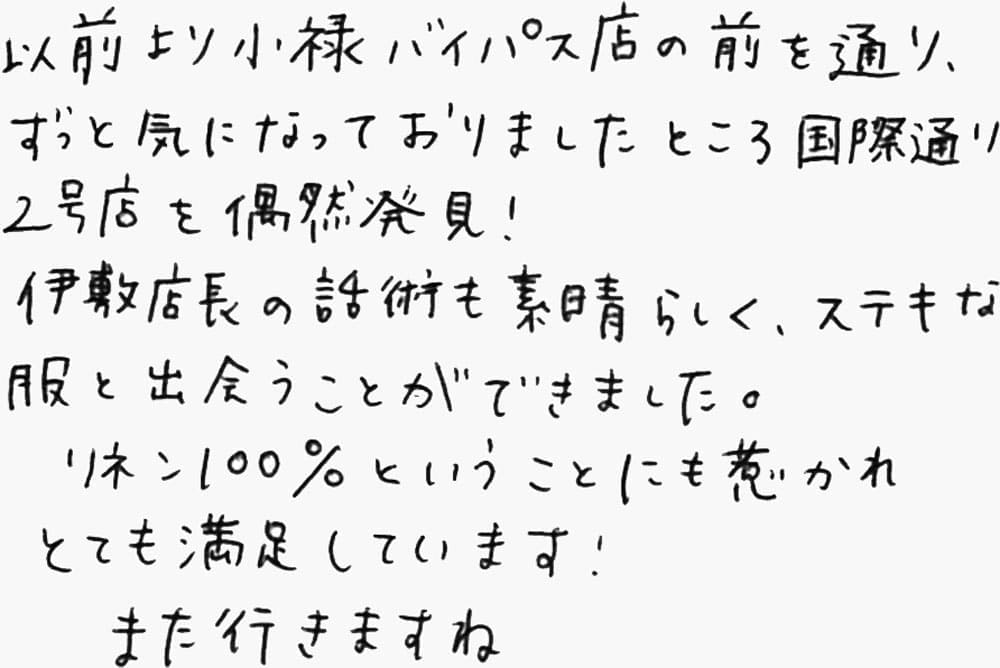 以前より小禄バイパス店の前を通り、
ずっと気になっておりましたところ国際通り
2号店を偶然発見!
伊敷店長の話術も素晴らしく、ステキな
服と出会うことができました。
リネン100%ということにも惹かれ
とても満足しています!
また行きますね